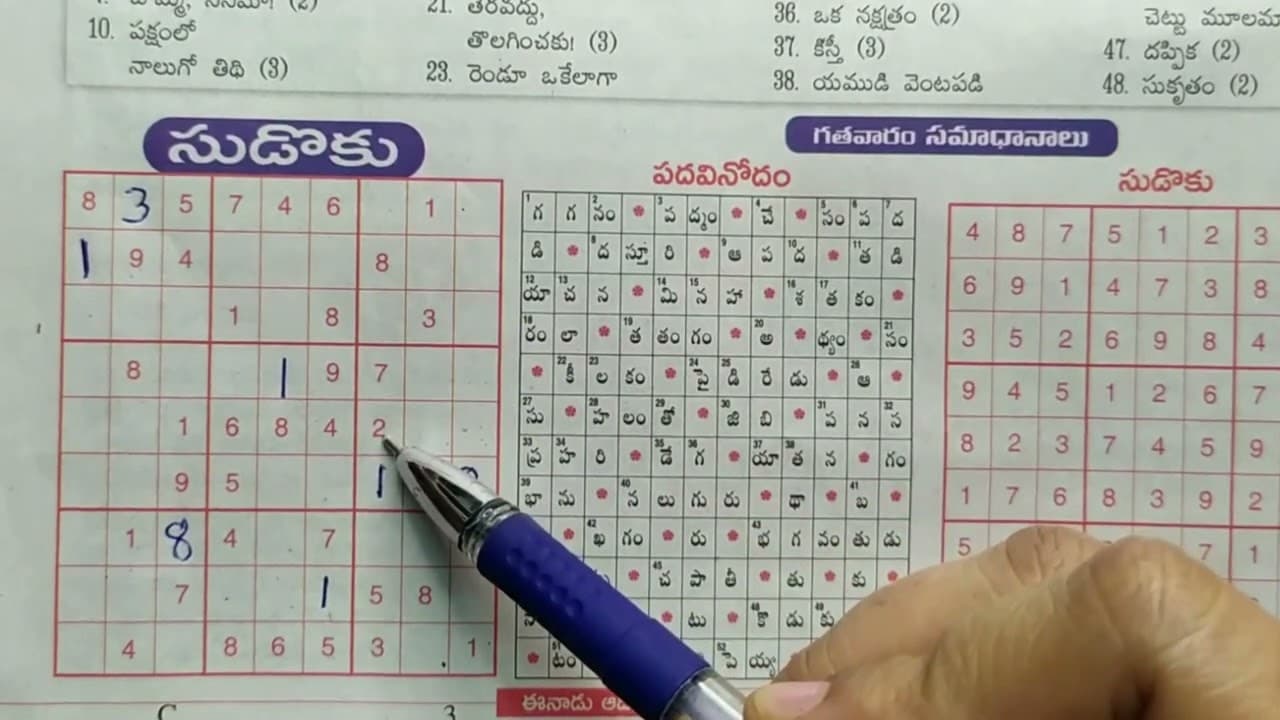 10. పక్షంలో
నాలుగో తిథి (3)
తొలగించకు! (3)
23. రెండూ ఒకేలాగా
36. ఒక నక్షత్రం (2)
37. కిస్తీ (3)
38. యముడి వెంటపడి
47. దప్పిక (2)
48. సుకృతం (2)
సుడొకు
8 3 5 7 4 6 1
1 9 4 8
1 8 3
8 1 9 7
1 6 8 4 2
9 5 1
1 8 4 7
7 1 5 8
4 8 6 5 3 1
గతవారం సమాధానాలు
పదవినోదం
గ గ నం ప ద్మం చే సం ప ద
డి ద స్తూ రి ఆ ప ద త డి
యా చ న మి న హా శ త కం
రం లా త తం గం అ థ్యం సం
కీ ల కం పై డి రే డు ఆ
సు హ లం తో జి బి ప న స
ప్ర హ రి డే గ యా త న గం
భా ను న లు గు రు థా బ
ఖ గం రు భ గ వం తు డు
చ పా తీ తు కు
టు కొ డు కు
టం పె య్య
సుడోకు
4 8 7 5 1 2 3
6 9 1 4 7 3 8
3 5 2 6 9 8 4
9 4 5 1 2 6 7
8 2 3 7 4 5 9
1 7 6 8 3 9 2
5 7 1